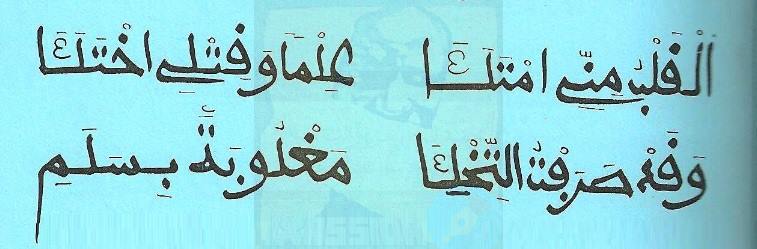 اَلْقَلْبُ مِنِّي امْتَلَأَ عِلْمًا وَقَتْلِي اخْتَلَأَ
وَقَدْ صَرَفْتُ مَغْلُوبَةً بِسَلَمِ